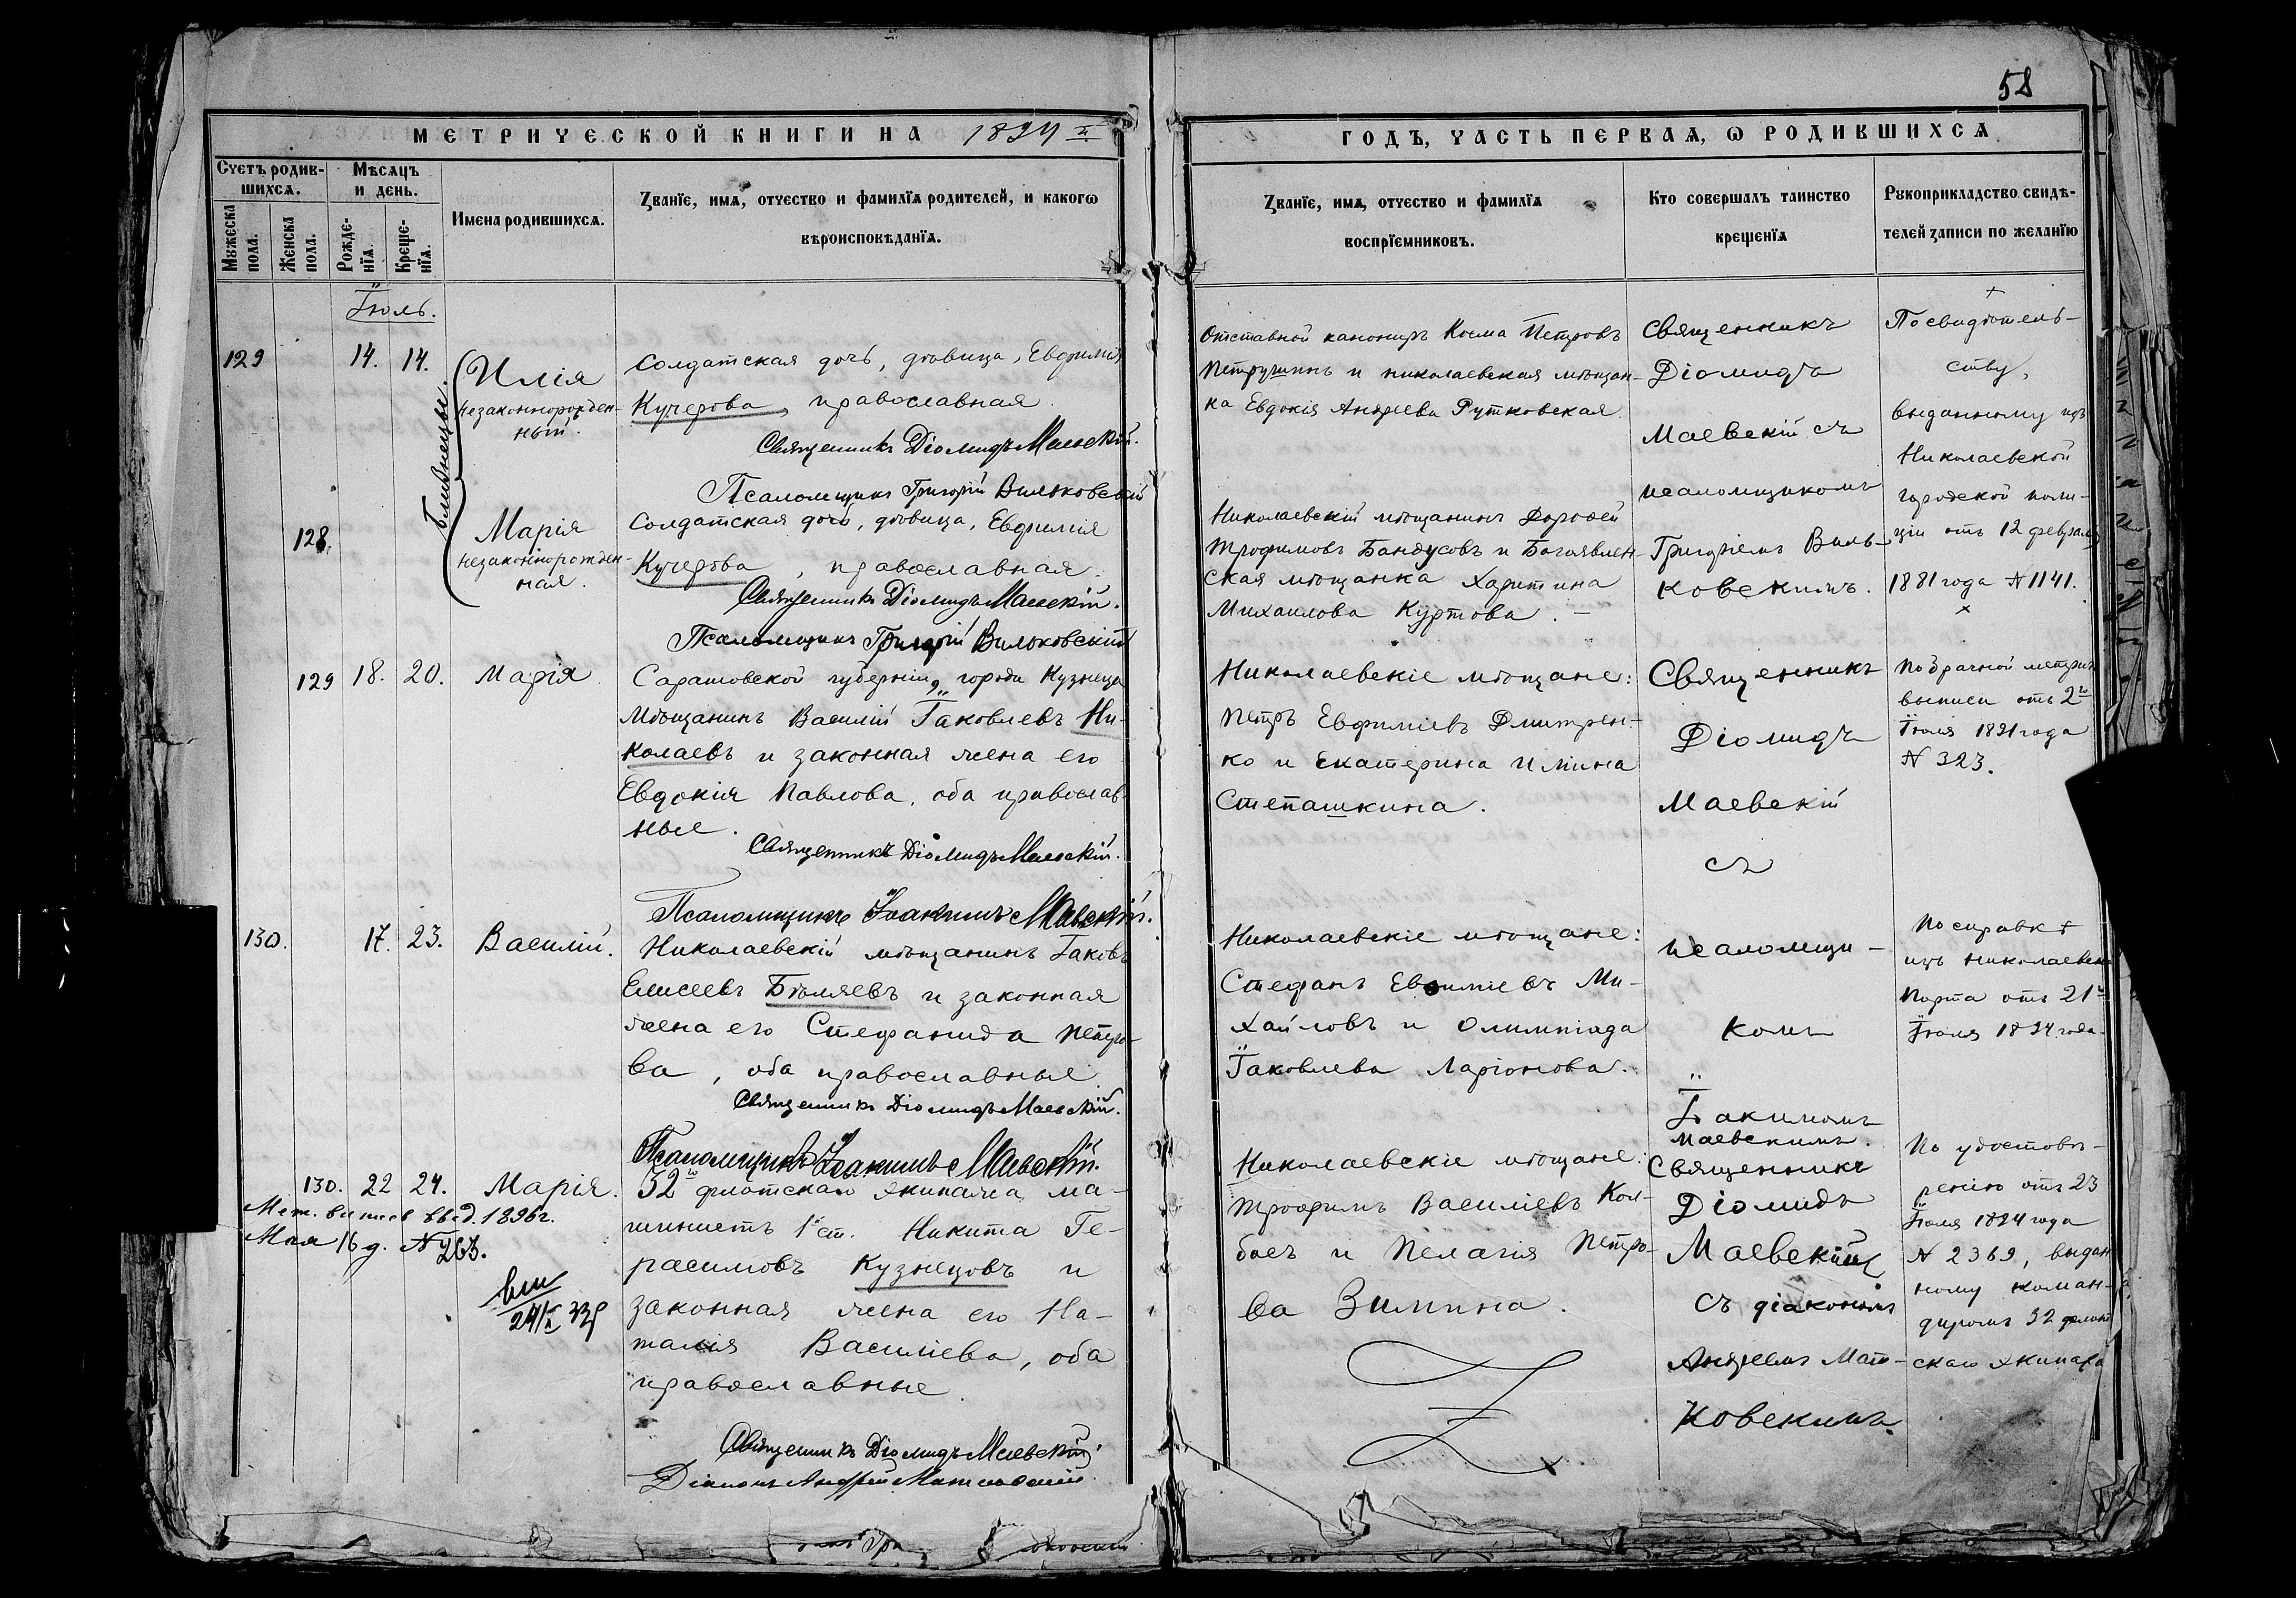 58
МЕТРИЧЕСКОЙ КНИГИ НА 1894 й
ГОДЪ, ЧАСТЬ ПЕРВАЯ, Ѡ РОДИВШИХСЯ
Счетъ родив-
шихся.
Мѣсяцъ
и день.
Мужеска
пола.
Женска
пола.
Рожде-
нїя.
Креще-
нїя.
Имена родившихся.
Званїе, имя, отчество и фамилїя родителей, и какогѡ
вѣроисповѣданїя.
Званїе, имя, отчество и фамилїя
воспрїемниковъ.
Кто совершалъ таинство
крещенїя
Рукоприкладство свидѣ-
телей записи по желанїю
Іюль.
129
14. 14.
Близнецы.
Илія
незаконнорожден-
ный.
Солдатская дочь, дѣвица, Евфимія
Кучерова, православная.
Священникъ Діомидъ Маевскій.
Псаломщикъ Григорій Вильковскій
Отставной канониръ Косма Петровъ
Петрушинъ и николаевская мѣщан-
ка Евдокія Андреева Рутковская
Священникъ
Діомидъ
Маевскій съ
псаломщикомъ
Григоріемъ Виль-
ковскимъ.
По свидѣтель-
ству,
выданному изъ
Николаевской
городской поли-
ціи отъ 12 февраля
1881 года № 1141.
128
Марія
незаконнорожден-
ная.
Солдатская дочь, дѣвица, Евфимія
Кучерова, православная.
Священникъ Діомидъ Маевскій.
Псаломщикъ Григорій Вильковскій
Николаевскій мѣщанинъ Дорофей
Трофимовъ Бандусовъ и Богоявлен-
ская мѣщанка Харитина
Михаилова Куртова. –
129
18. 20.
Марія
Саратовской губерніи, города Кузнеца
мѣщанинъ Василій Іаковлевъ Ни-
колаевъ и законная жена его
Евдокія Павлова, оба православ-
ные.
Священникъ Діомидъ Маевскій.
Псаломщикъ Іоакимъ Маевскій.
Николаевскіе мѣщане:
Петръ Евфиміевъ Дмитрен-
ко и Екатерина Иліина
Степашкина.
Священникъ
Діомидъ
Маевскій
съ
псаломщи-
комъ
Іоакимомъ
Маевскимъ.
По брачной метрич.
выписи отъ 2го
Іюля 1891 года
№ 323.
130.
17. 23.
Василій.
Николаевскій мѣщанинъ Іаковъ
Елисеевъ Бѣляевъ и законная
жена его Стефанида Петро-
ва, оба православные
Священникъ Діомидъ Маевскій.
Псаломщикъ Іоакимъ Маевскій.
Николаевскіе мѣщане:
Стефанъ Евфиміевъ Ми-
хайловъ и Олимпіада
Іаковлева Ларіонова.
По справкѣ
изъ Николаевск.
Порта отъ 21го
Іюля 1894 года.
130. 22 24.
Мет. выпись выд. 1896 г.
Мая 16 д. № 263.
Марія.
32го флотскаго экипажа ма-
шинистъ 1 ст. Никита Ге-
расимовъ Кузнецовъ и
законная жена его На-
талія Василіева, оба
православные.
Священникъ Діомидъ Маевскій.
Діаконъ Андрей Матковскій
Николаевскіе мѣщане:
Трофимъ Василіевъ Кол-
баса и Пелагія Петро-
ва Зимина.
Священникъ
Діомидъ
Маевскій
съ діакономъ
Андреемъ Мат-
ковскимъ.
По удостовѣ-
ренію отъ 23
Іюля 1894 года
№ 2369, выдан-
ному коман-
диромъ 32 флот-
скаго экипажа